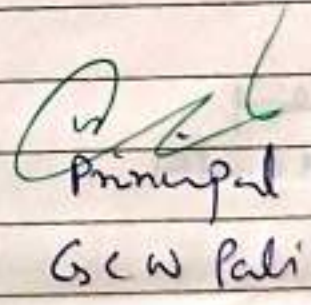 Principal
GCW Pali